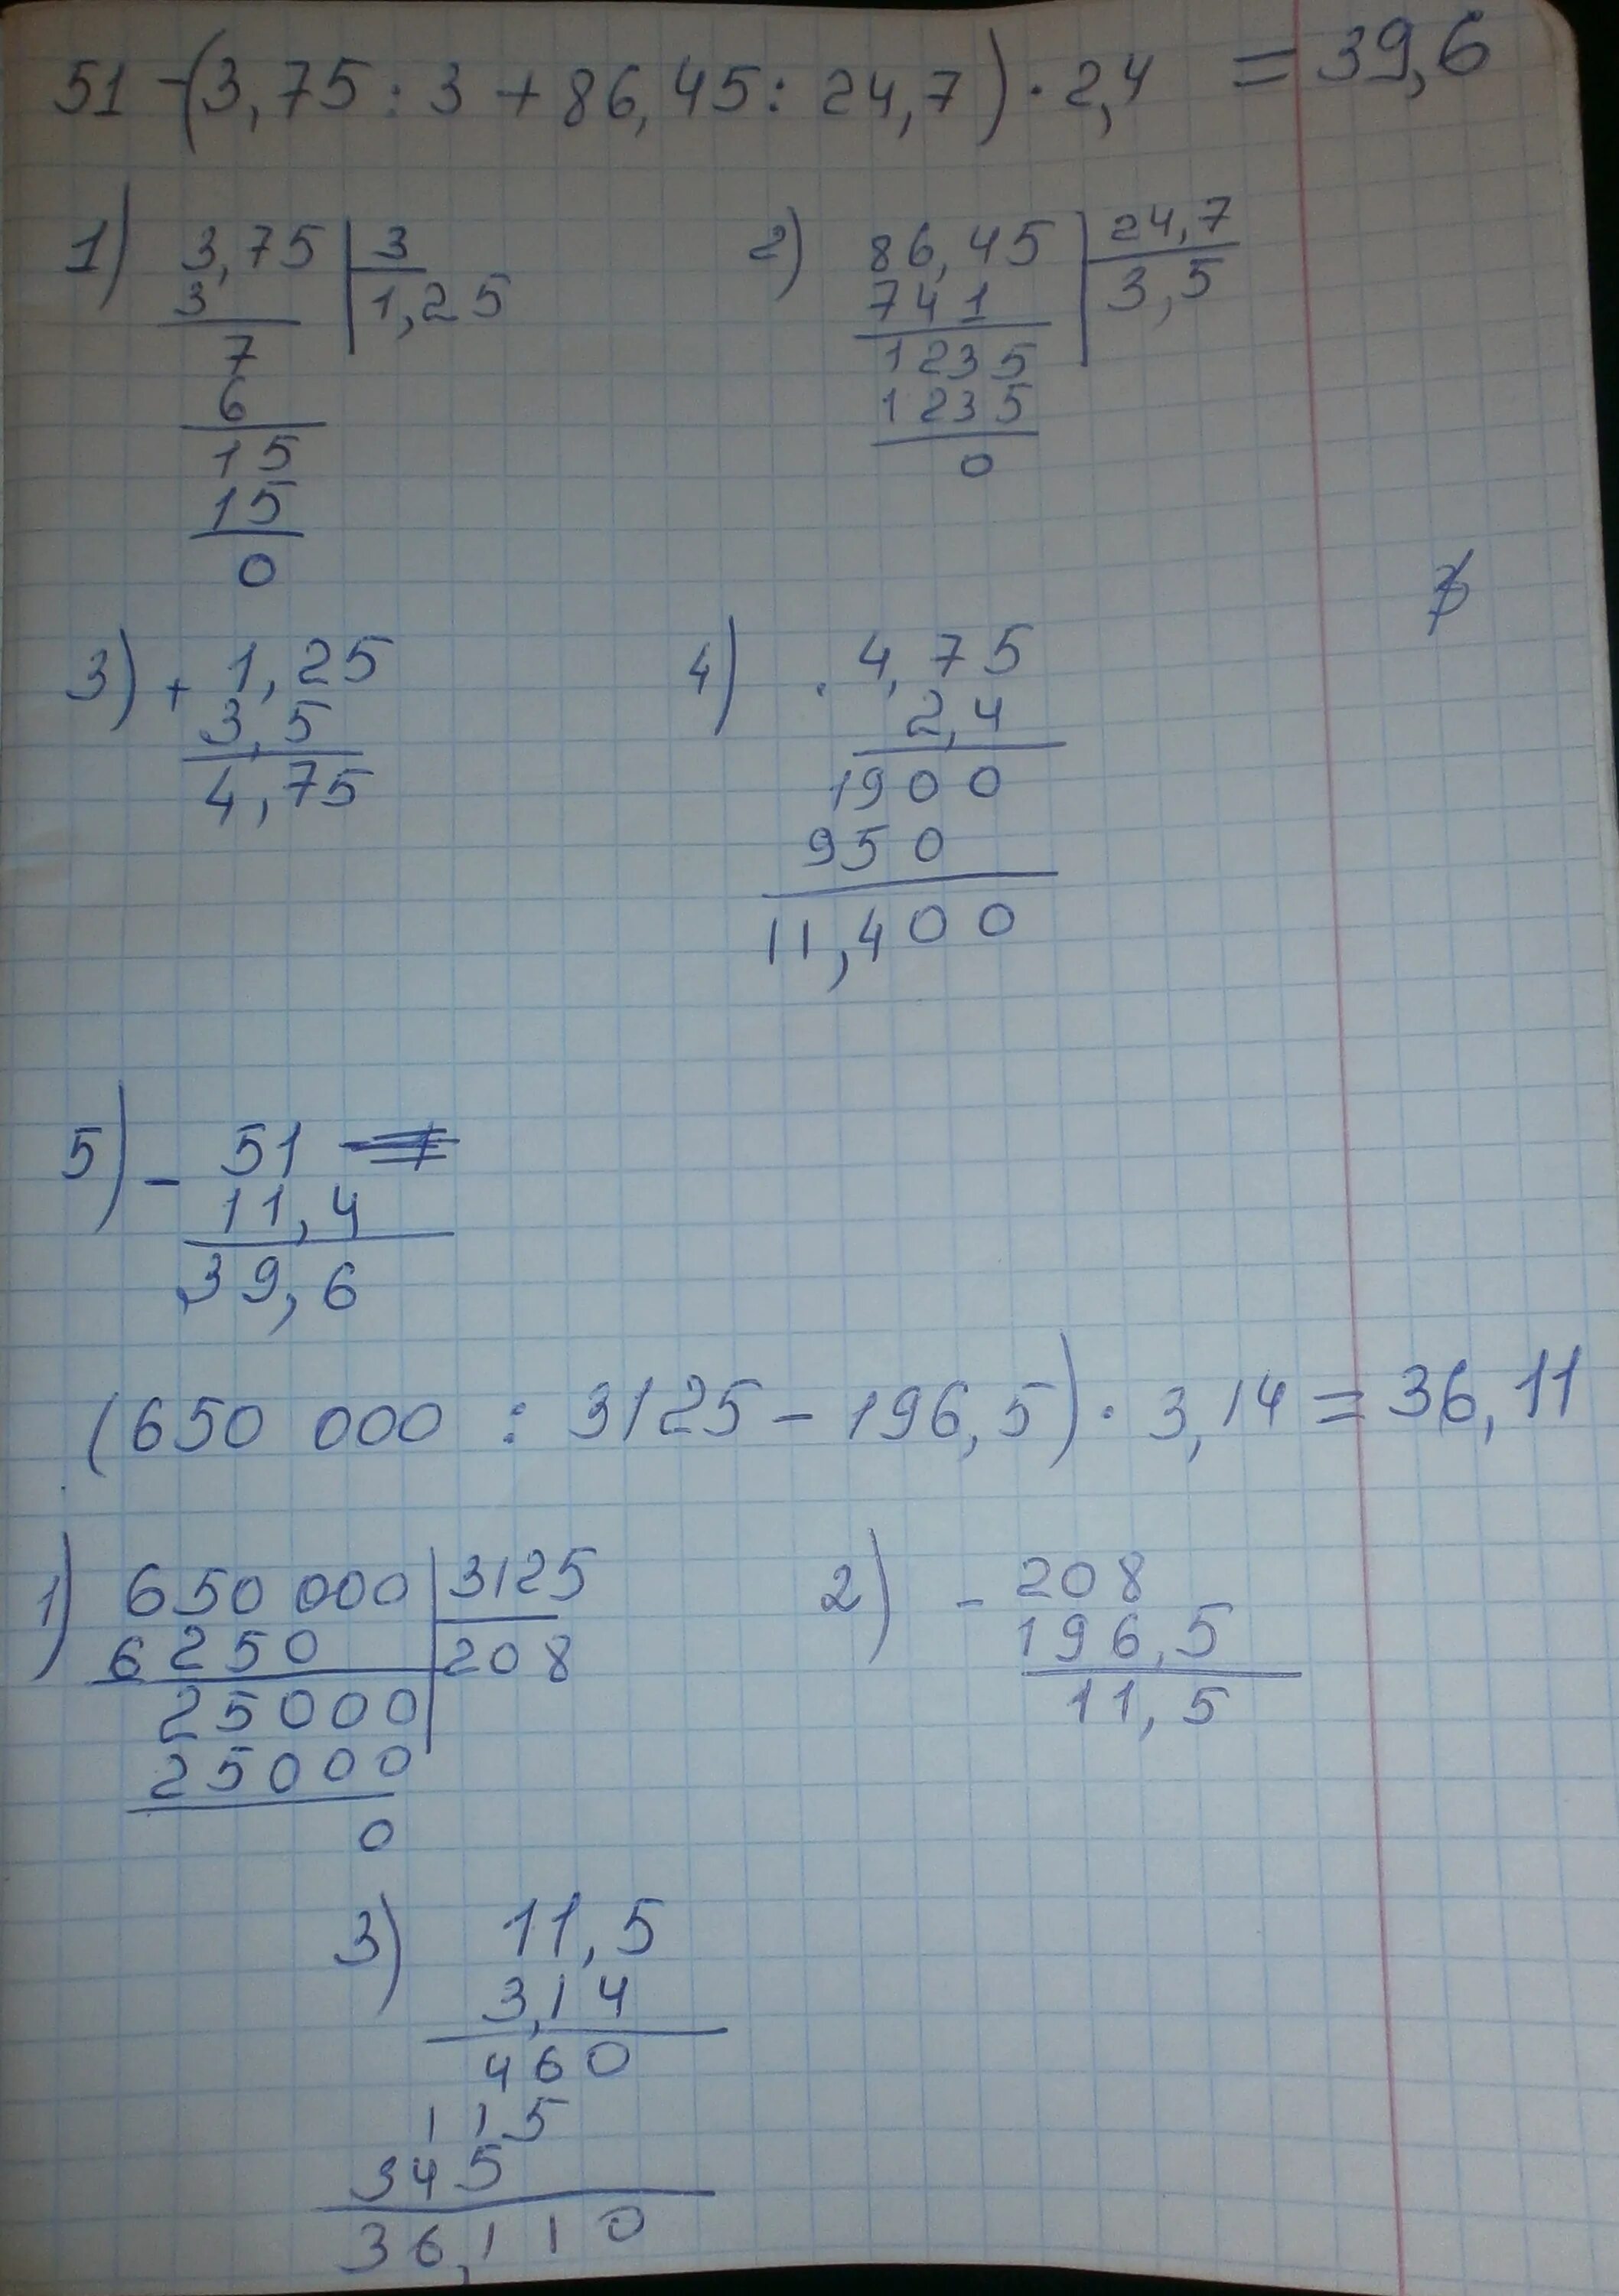 51 - (3,75 : 3 + 86,45 : 24,7) · 2,4 = 39,6
1) 3,75 3
3 1,25
7
6
15
15
0
2) 86,45 24,7
741 3,5
1235
1235
0
3) + 1,25
3,5
4,75
4) · 4,75
2,4
1900
950
11,400
5) - 51
11,4
39,6
(650 000 : 3125 - 196,5) · 3,14 = 36,11
1) 650 000 3125
6250 208
25000
25000
0
2) - 208
196,5
11,5
3) 11,5
3,14
460
115
345
36,110